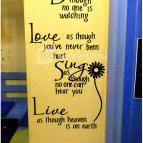 though
no one is
watching
Love as though
you've never been
hurt
Sing
as though
no one can
hear you
Live
as though heaven
is on earth